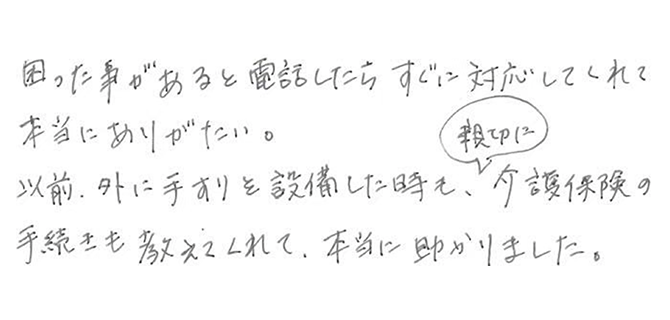 困った事があると電話したらすぐに対応してくれて
本当にありがたい。
親切に
以前、外に手すりを設備した時も、介護保険の
手続きも教えてくれて、本当に助かりました。